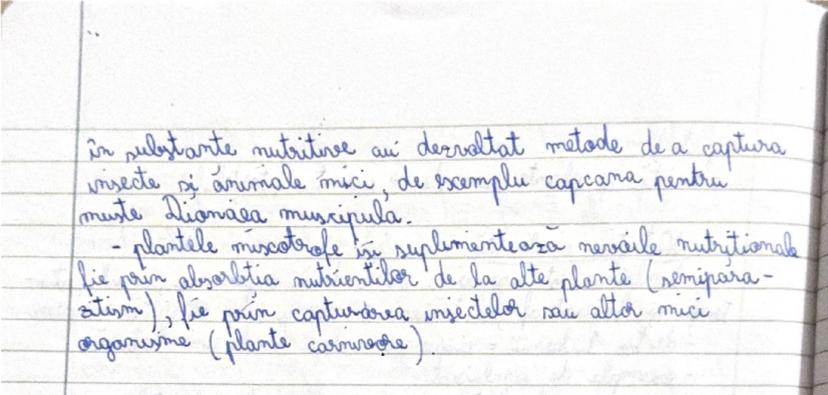 în substante nutritive au dezvoltat metode de a captura
insecte și animale mici, de exemplu capcana pentru
muste Dionaea muscipula.
- plantele mixotrofe își suplimentează nevoile nutriționale
fie prin absorbtia nutrientilor de la alte plante (semipara-
zitism), fie prin capturarea insectelor sau altor mici
organisme (plante carnivore).